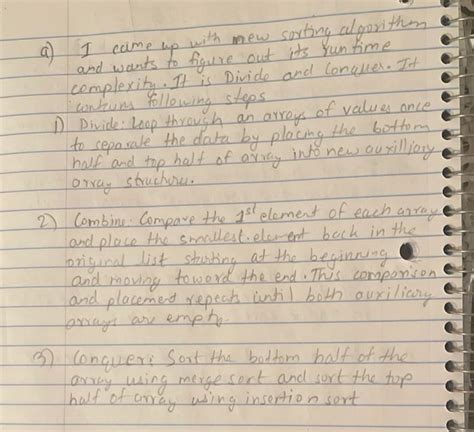 a) I came up with new sorting algorithm
and wants to figure out its runtime
complexity. It is Divide and Conquer. It
contains following steps
1) Divide: Loop through an arrays of values once
to separate the data by placing the bottom
half and top half of array into new auxilliary
array structure.
2) Combine: Compare the 1st element of each array
and place the smallest element back in the
original list starting at the beginning
and moving toward the end. This comparison
and placement repeats until both auxiliary
arrays are empty.
3) Conquer: Sort the bottom half of the
array using merge sort and sort the top
half of array using insertion sort